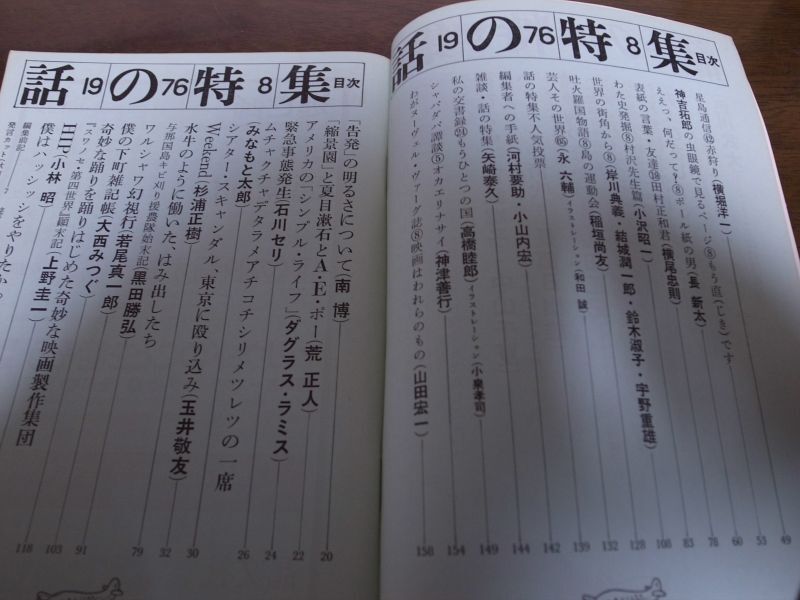 話19の76特8集 目次
星島通信⑫赤狩り(横堀洋一)
神吉拓郎の虫眼鏡で見るページ⑧もう直(じき)です
ええっ、何だって?⑧ボール紙の男(長 新太)
表紙の言葉・友達⑱田村正和君(横尾忠則)
わた史発掘⑧村沢先生篇(小沢昭一)
世界の街角から⑧(岸川典義・結城潤一郎・鈴木淑子・宇野重雄)
吐火羅国物語⑧島の運動会(稲垣尚友)
芸人その世界㊺(永 六輔)イラストレーション(和田 誠)
話の特集不人気投票
編集者への手紙(河村要助・小山内宏)
雑談・話の特集(矢崎泰久)
私の交書録㉔もうひとつの国(高橋睦郎)イラストレーション(小泉孝司)
シャバダバ譚⑤オカエリナサイ(神津善行)
わがヌーヴェル・ヴァーグ誌⑧映画はわれらのもの(山田宏一)
49
53
60
78
83
108
128
136
139
142
144
149
154
158
話19の76特8集 目次
「告発」の明るさについて(南 博)
「縮景園」と夏目漱石とA・E・ポー(荒 正人)
アメリカの「シンプル・ライフ」(ダグラス・ラミス)
緊急事態発生(石川セリ)
ムチャクチャデタラメアチコチシリメツレツの一席
(みなもと太郎)
シアター・スキャンダル、東京に殴り込み(玉井敬友)
Weekend(杉浦正樹)
水牛のように働いた、はみ出したち
与那国島キビ刈り援農隊始末記(黒田勝弘)
ワルシャワ幻視行(若尾真一郎)
僕の下町雑記帳(大西みつぐ)
奇妙な踊りを踊りはじめた奇妙な映画製作集団
『スワノセ・第四世界』顚末記(上野圭一)
HELP(小林 昭)
僕はハッシッシをやりたかった。
編集前記
20
22
24
26
30
32
79
91
103
118